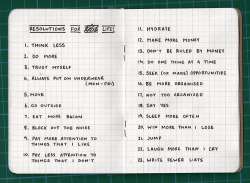 RESOLUTIONS FOR LIFE
1. THINK LESS
2. DO MORE
3. TRUST MYSELF
4. ALWAYS PUT ON UNDERWEAR
(MON-FRI)
5. MOVE
6. GO OUTSIDE
7. EAT MORE BACON
8. BLOCK OUT THE NOISE
9. PAY MORE ATTENTION TO
THINGS THAT I LIKE
10. PAY LESS ATTENTION TO
THINGS THAT I DON'T
11. HYDRATE
12. MAKE MORE MONEY
13. DON'T BE RULED BY MONEY
14. DO ONE THING AT A TIME
15. SEEK (OR MAKE) OPPORTUNITIES
16. BE MORE ORGANISED
17. NOT TOO ORGANISED
18. SAY YES
19. SLEEP MORE OFTEN
20. WIN MORE THAN I LOSE
21. JUMP
22. LAUGH MORE THAN I CRY
23. WRITE FEWER LISTS